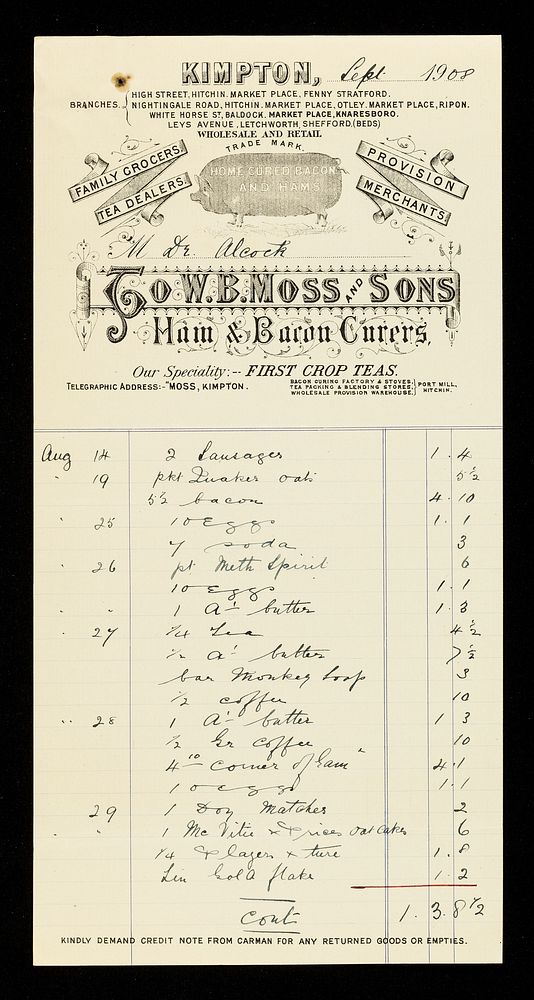 KIMPTON, Sept 1908
BRANCHES. HIGH STREET, HITCHIN. MARKET PLACE, FENNY STRATFORD.
NIGHTINGALE ROAD, HITCHIN. MARKET PLACE, OTLEY. MARKET PLACE, RIPON.
WHITE HORSE ST, BALDOCK. MARKET PLACE, KNARESBORO.
LEYS AVENUE, LETCHWORTH, SHEFFORD, (BEDS)
WHOLESALE AND RETAIL
TRADE MARK.
FAMILY GROCERS,
TEA DEALERS.
HOME CURED BACON
AND HAMS
PROVISION
MERCHANTS
M Dr Alcock
To W. B. MOSS AND SONS
Ham & Bacon Curers,
Our Speciality:-- FIRST CROP TEAS.
TELEGRAPHIC ADDRESS:- "MOSS, KIMPTON.
BACON CURING FACTORY & STOVES,
TEA PACKING & BLENDING STORES,
WHOLESALE PROVISION WAREHOUSE,
PORT MILL, HITCHIN.
Aug 14 2 Sausages 1 . 4
" 19 pkt Quaker oats 5½
5½ bacon 4 . 10
" 25 10 Eggs 1 . 1
7 soda 3
" 26 pt Meth Spirit 6
10 Eggs 1 . 1
" " 1 A1 butter 1 . 3
" 27 ¼ Tea 4½
½ A1 butter 7½
bar Monkey Soap 3
½ coffee 10
" 28 1 A1 butter 1 3
½ Gr coffee 10
4 10 corner of Gam 4 . 1
10 eggs 1 . 1
29 1 Doz Matches 2
" " 1 Mc Vitie & Prices oat cakes 6
¼ 1 . 8
Tin Gold flake 1 . 2
Cont 1 . 3 . 8½
KINDLY DEMAND CREDIT NOTE FROM CARMAN FOR ANY RETURNED GOODS OR EMPTIES.